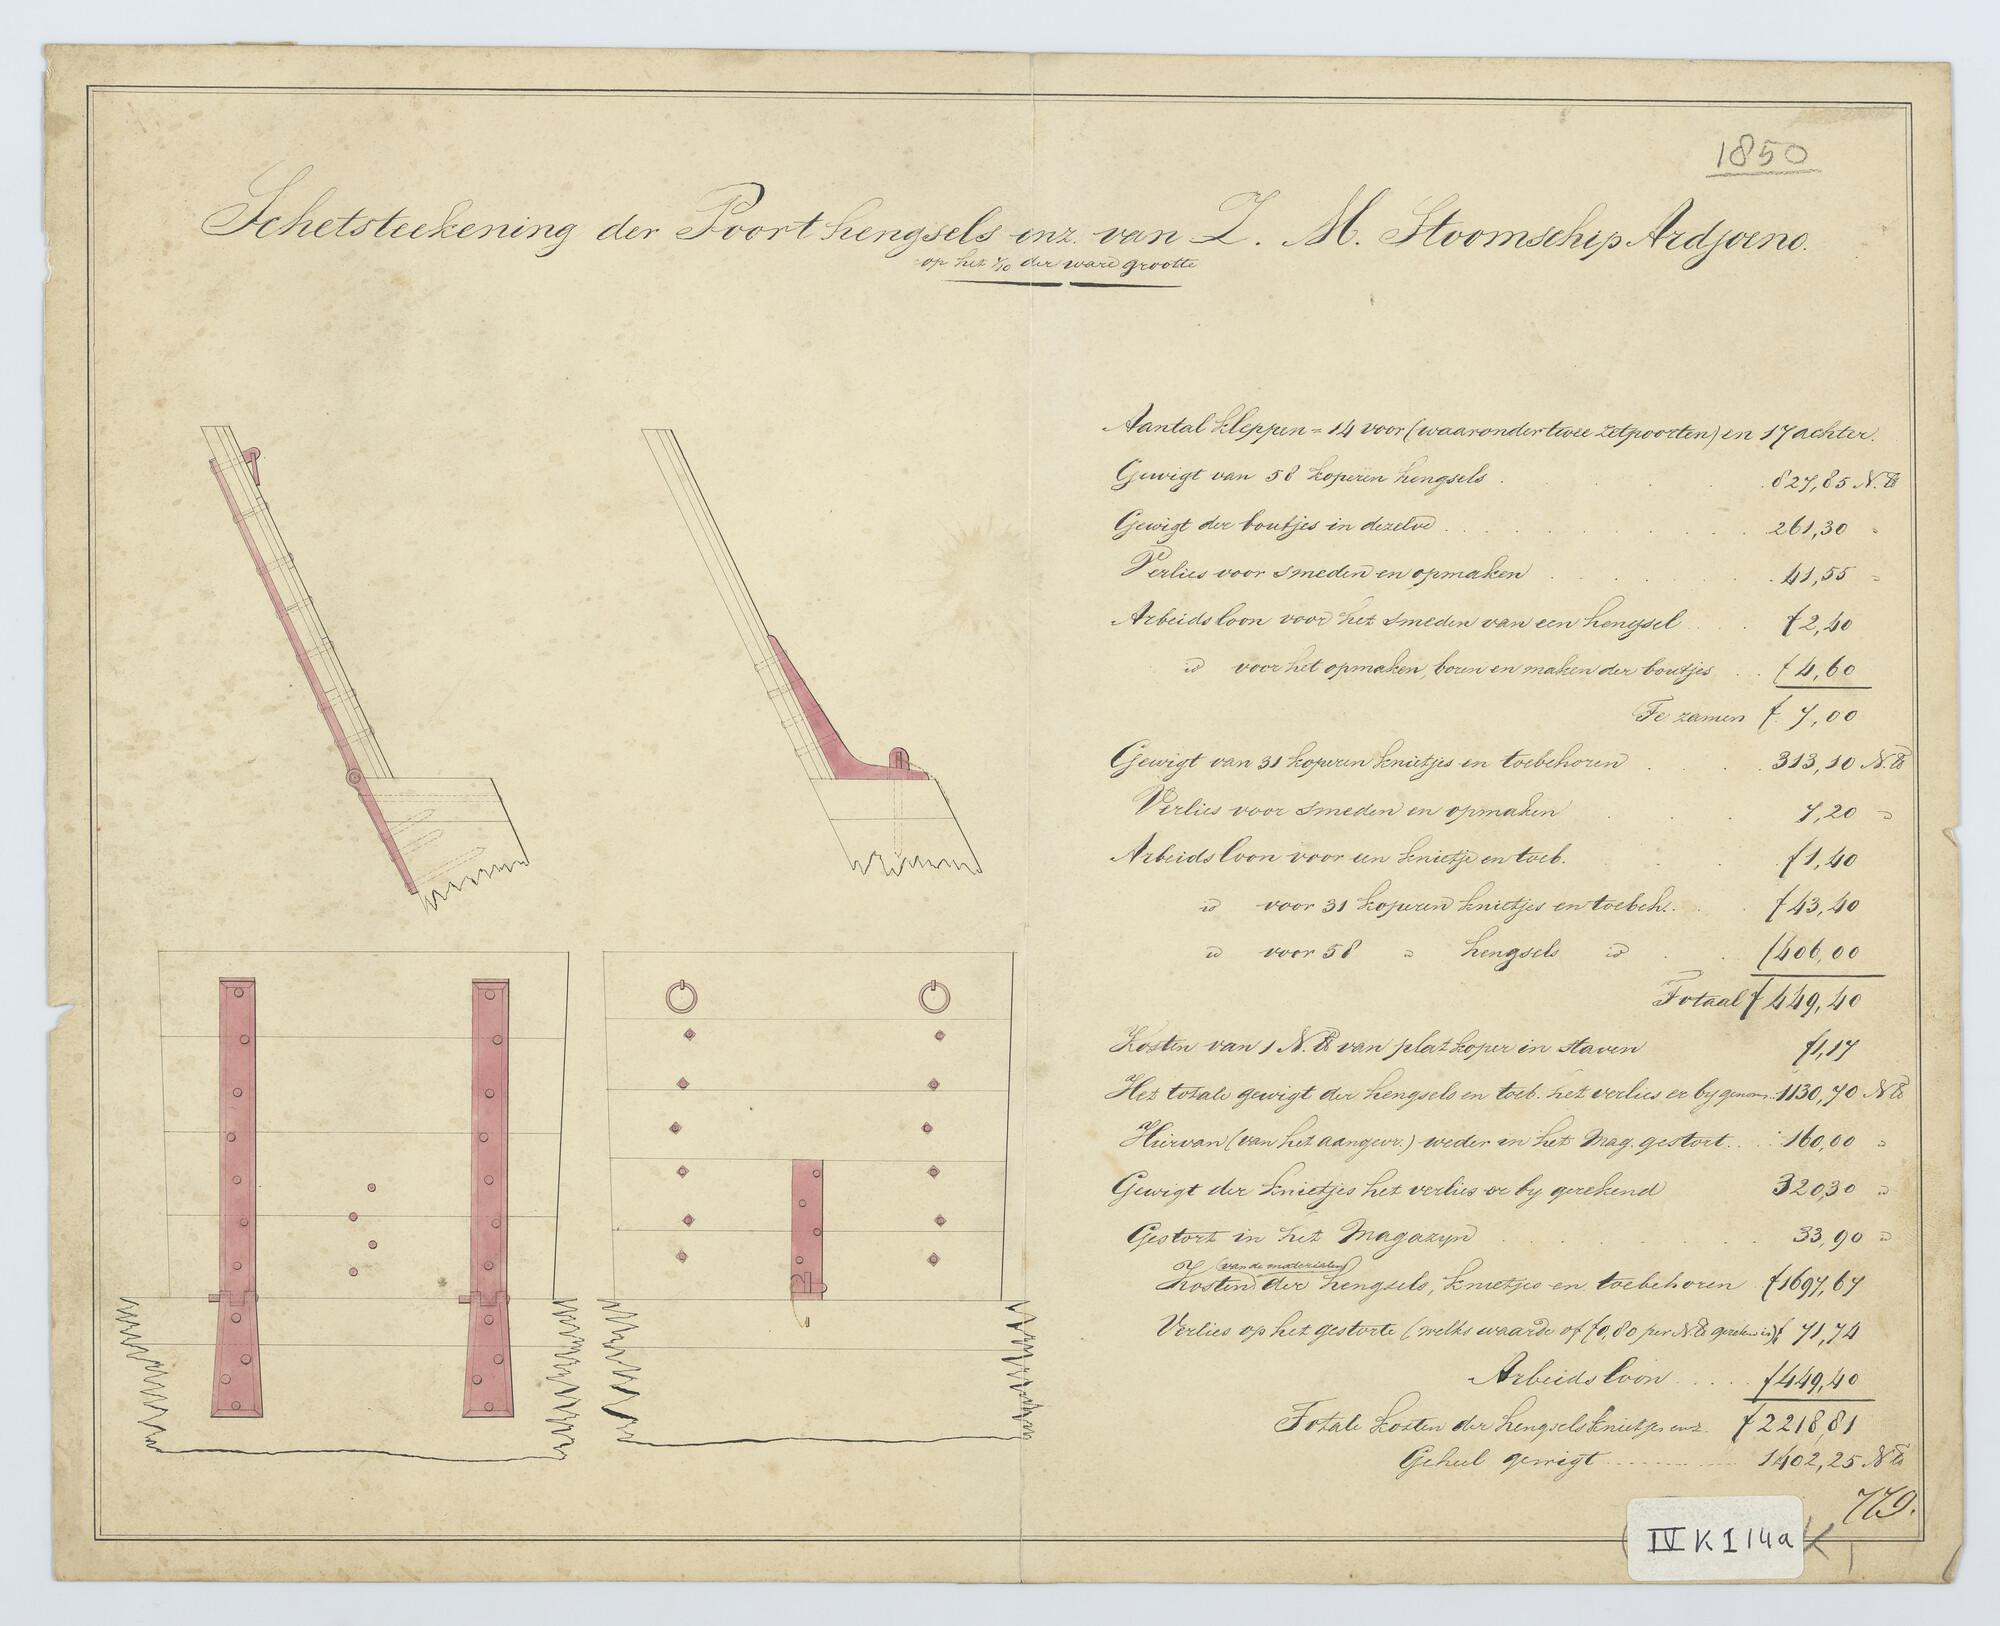 1850
Schetsteekening der Poort hengsels enz. van Z. M. Stoomschip Ardjoeno.
op het 1/10 der ware grootte
Aantal kleppen = 14 voor (waaronder twee zetpoorten) en 17 achter.
Gewigt van 58 koperen hengsels . . . . 827,85 N. ℔
Gewigt der boutjes in dezelve . . . . 261,30 "
Verlies voor smeden en opmaken . . . . 41,55 "
Arbeidsloon voor het smeden van een hengsel . . f 2,40
id voor het opmaken, boren en maken der boutjes . . f 4,60
Te zamen f 7,00
Gewigt van 31 koperen knietjes en toebehoren . . . 313,10 N. ℔
Verlies voor smeden en opmaken . . . 7,20 "
Arbeidsloon voor een knietje en toeb. . . . f 1,40
id voor 31 koperen knietjes en toebeh. . . f 43,40
id voor 58 " hengsels id . . f 406,00
Totaal f 449,40
Kosten van 1 N. ℔ van plat koper in staven f 1,17
Het totale gewigt der hengsels en toeb. het verlies er by genom. 1130,70 N ℔
Hiervan (van het aangew.) weder in het Mag. gestort . . . 160,00 "
Gewigt der knietjes het verlies er by gerekend 320,30 "
Gestort in het Magazyn . . . . 33,90 "
van de materialen
Kosten der hengsels, knietjes en toebehoren f 1697,67
Verlies op het gestorte (welks waarde of f 0,80 per N. ℔ gerekend is) f 71,74
Arbeidsloon . . . . f 449,40
Totale kosten der hengsels knietjes enz. f 2218,81
Geheel gewigt . . . . . . 1402,25 N ℔
779.
IV K 1 14a